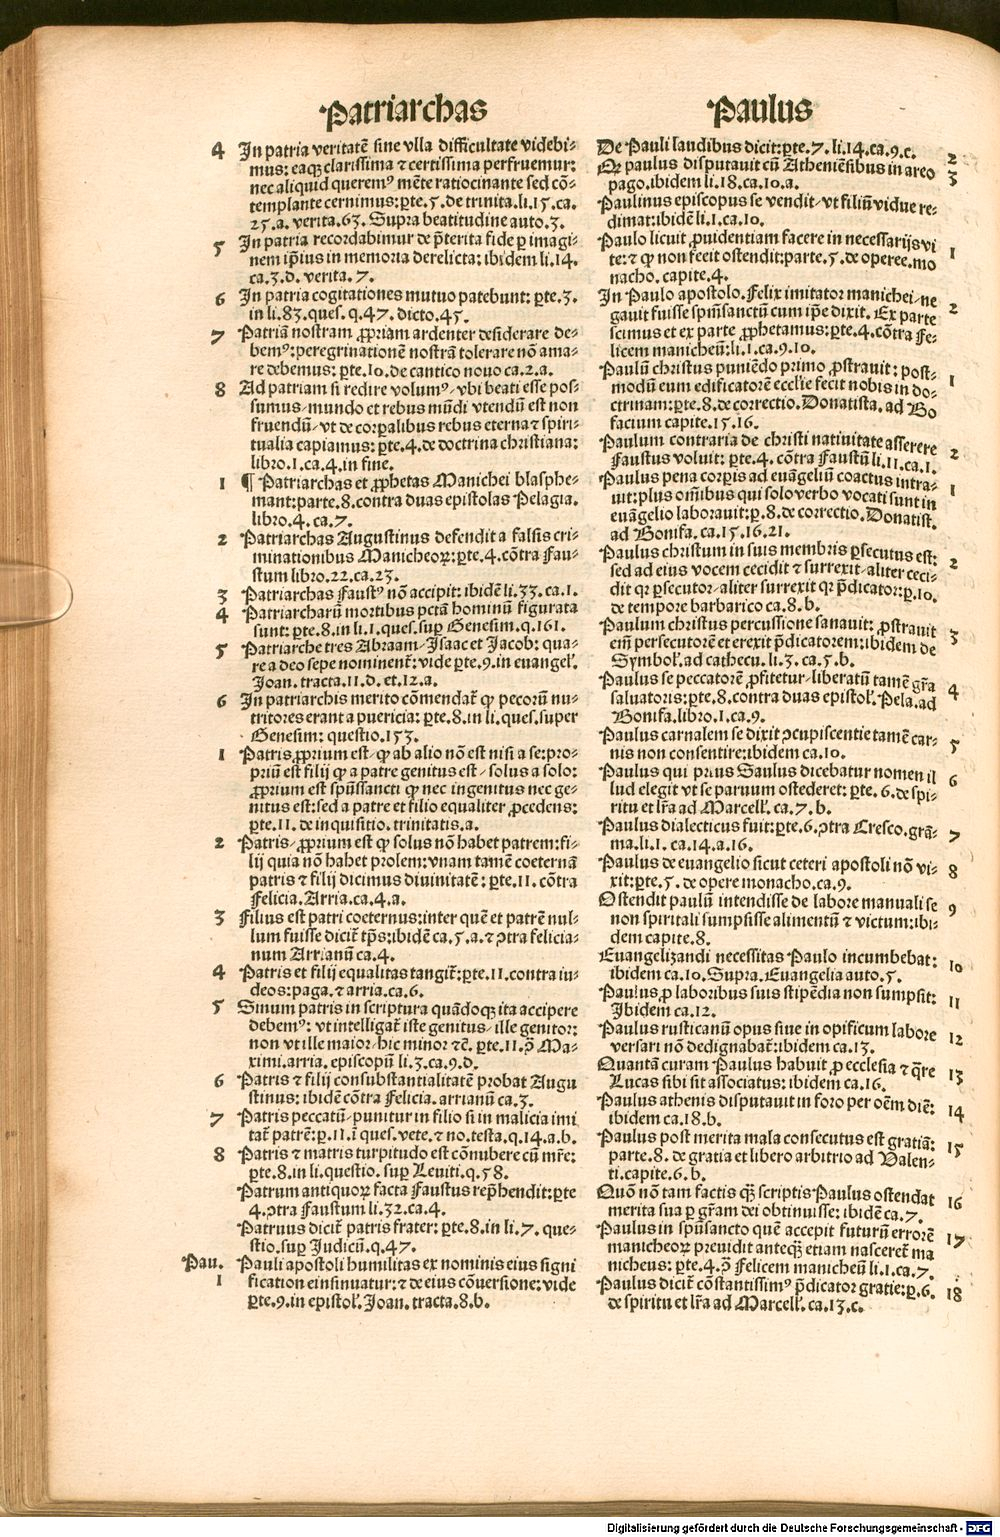 Patriarchas
4 In patria veritatē sine vlla difficultate videbi-
mus: eaqꝫ clarissima ⁊ certissima perfruemur:
nec aliquid queremꝰ mēte ratiocinante sed cō-
templante cernimus: ꝑte.5.de trinita.li.15.ca.
25.a. verita.63. Supra beatitudine auto.3.
5 In patria recordabimur de p̄terita fide ꝑ imagi-
nem ip̄ius in memoria derelicta: ibidem li.14.
ca.3.d. verita.7.
6 In patria cogitationes mutuo patebunt: ꝑte.3.
in li.83.ques. q.47. dicto.45.
7 Patriā nostram ꝓpriam ardenter desiderare de-
bemꝰ: peregrinationē nostrā tolerare nō ama-
re debemus: ꝑte.10.de cantico nouo ca.2.a.
8 Ad patriam si redire volumꝰ/ vbi beati esse pos-
sumus/ mundo et rebus mūdi vtendū est non
fruendū/ vt de corꝑalibus rebus eterna ⁊ spiri-
tualia capiamus: ꝑte.4.de doctrina christiana:
libro.1.ca.4.in fine.
1 ¶ Patriarchas et ꝓphetas Manichei blasphe-
mant: parte.8.contra duas epistolas Pelagia.
libro.4. ca.7.
2 Patriarchas Augustinus defendit a falsis cri-
minationibus Manicheoꝝ: ꝑte.4.cōtra Fau-
stum libro.22.ca.23.
3 Patriarchas Faustꝰ nō accipit: ibidē li.33.ca.1.
4 Patriarcharū mortibus pctā hominū figurata
sunt: ꝑte.8.in li.1.ques.suꝑ Genesim.q.161.
5 Patriarche tres Abraam/ Isaac et Jacob: qua-
re a deo sepe nominent᷑: vide ꝑte.9.in euangel̕.
Joan. tracta.11.d. et.12.a.
6 In patriarchis merito cōmendat᷑ ꝙ pecorū nu-
tritores erant a puericia: ꝑte.8.in li.ques.super
Genesim: questio.153.
1 Patris ꝓprium est/ ꝙ ab alio nō est nisi a se: pro-
priū est filij ꝙ a patre genitus est/ solus a solo:
ꝓprium est spūssancti ꝙ nec ingenitus nec ge-
nitus est: sed a patre et filio equaliter ꝓcedens:
ꝑte.11. de inquisitio. trinitatis.a.
2 Patris/ ꝓprium est ꝙ solus nō habet patrem: fi-
lij quia nō habet prolem: vnam tamē coeternā
patris ⁊ filij dicimus diuinitatē: ꝑte.11. cōtra
Felicia. Arria.ca.4.a.
3 Filius est patri coeternus: inter quē et patrē nul-
lum fuisse dicit᷑ tp̄s: ibidē ca.5.a.⁊ ↄtra felicia-
num Arrianū ca.4.
4 Patris et filij equalitas tangit᷑: ꝑte.11.contra iu-
deos: paga.⁊ arria.ca.6.
5 Sinum patris in scriptura quādoqꝫ ita accipere
debemꝰ: vt intelligat᷑ iste genitus/ ille genitor:
non vt ille maior/ hic minor ⁊c̄. ꝑte.11.ↄ̄ Ma-
ximi.arria. episcopū li.3.ca.9.d.
6 Patris ⁊ filij consubstantialitatē probat Augu
stinus: ibidē cōtra Felicia. arrianū ca.3.
7 Patris peccatū/ punitur in filio si in malicia imi
tat᷑ patrē: ꝑ.11.ī ques.vete.⁊ no.testa.q.14.a.b.
8 Patris ⁊ matris turpitudo est cōnubere cū mr̄e:
ꝑte.8.in li.questio. suꝑ Leuiti.q.58.
Patrum antiquoꝝ facta Faustus rep̄hendit: ꝑte
4.ↄtra Faustum li.32.ca.4.
Patruus dicit᷑ patris frater: ꝑte.8.in li.7. que-
stio.suꝑ Judicū.q.47.
Pau.
1 Pauli apostoli humilitas ex nominis eius signi
fication einsinuatur: ⁊ de eius cōuersione: vide
ꝑte.9.in epistol̕. Joan. tracta.8.b.
Paulus
De Pauli laudibus dicit: ꝑte.7.li.14.ca.9.c. 2
Qꝛ paulus disputauit cū Atheniēsibus in areo 3
pago.ibidem li.18.ca.10.a.
Paulinus episcopus se vendit/ vt filiū vidue re-
dimat: ibidē li.1.ca.10.
Paulo licuit ꝓuidentiam facere in necessarijs vi 1
te: ⁊ ꝙ non fecit ostendit: parte.5.de operee.mo
nacho. capite.4.
In Paulo apostolo. Felix imitator manichei/ ne 2
gauit fuisse spm̄sanctū cum ip̄e dixit. Ex parte
scimus et ex parte ꝓphetamus: ꝑte.4.cōtra Fe-
licem manicheū: li.1.ca.9.10.
Paulū christus puniēdo primo ꝓstrauit: post- 1
modū eum edificatorē eccl̕ie fecit nobis in do-
ctrinam: ꝑte.8.de correctio. Donatista. ad Bo
facium capite.15.16.
Paulum contraria de christi natiuitate asserere 2
Faustus voluit: ꝑte.4. cōtra Faustū li.11.ca.1.
Paulus pena corꝑis ad euāgeliū coactus intra- 1
uit: plus om̄ibus qui solo verbo vocati sunt in
euāgelio laborauit: ꝑ.8.de correctio. Donatist.
ad Bonifa. ca.15.16.21.
Paulus christum in suis membris ꝑsecutus est: 2
sed ad eius vocem cecidit ⁊ surrexit/ aliter ceci-
dit qꝛ ꝑsecutor/ aliter surrexit qꝛ p̄dicator: ꝑ.10.
de tempore barbarico ca.8.b.
Paulum christus percussione sanauit: ꝓstrauit 3
em̄ persecutorē et erexit p̄dicatorem: ibidem de
Symbol̕. ad cathecu. li.3.ca.5.b.
Paulus se peccatorē ꝓfitetur/ liberatū tamē gr̄a 4
saluatoris: ꝑte.8.contra duas epistol̕. Pela.ad
Bonifa.libro.1.ca.9.
Paulus carnalem se dixit ↄcupiscentie tamē car- 5
nis non consentire: ibidem ca.10.
Paulus qui prius Saulus dicebatur nomen il 6
lud elegit vt se paruum ostederet: ꝑte.6.de spi-
ritu et lr̄a ad Marcell̕. ca.7.b.
Paulus dialecticus fuit: ꝑte.6.ↄtra Cresco.grā- 7
ma.li.1. ca.14.a.16.
Paulus de euangelio sicut ceteri apostoli nō vi- 8
xit: ꝑte.5. de opere monacho.ca.9.
Ostendit paulū intendisse de labore manuali se 9
non spiritali sumpsisse alimentū ⁊ victum: ibi-
dem capite.8.
Euangelizandi necessitas Paulo incumbebat: 10
ibidem ca.10.Supra. Euangelia auto.5.
Paulus ꝓ laboribus suis stipēdia non sumpsit: 11
Ibidem ca.12.
Paulus rusticanū opus siue in opificum labore 12
versari nō dedignabat᷑: ibidem ca.13.
Quantā curam Paulus habuit ꝓ ecclesia ⁊ q̄re 13
Lucas sibi sit associatus: ibidem ca.16.
Paulus athenis disputauit in foro per oēm diē: 14
ibidem ca.18.b.
Paulus post merita mala consecutus est gratiā: 15
parte.8. de gratia et libero arbitrio ad Valen-
ti.capite.6.b.
Quō nō tam factis qꝫ̄ scriptis Paulus ostendat 16
merita sua ꝑ gr̄am dei obtinuisse: ibidē ca.7.
Paulus in spūsancto quē accepit futurū errorē 17
manicheoꝝ preuidit anteqꝫ̄ etiam nasceret᷑ ma
nicheus: ꝑte.4.ↄ̄ Felicem manicheū li.1.ca.7.
Paulus dicit᷑ cōstantissimꝰ p̄dicator gratie: ꝑ.6. 18
de spiritu et lr̄a ad Marcell̕. ca.13.c.
Digitalisierung gefördert durch die Deutsche Forschungsgemeinschaft - DFG